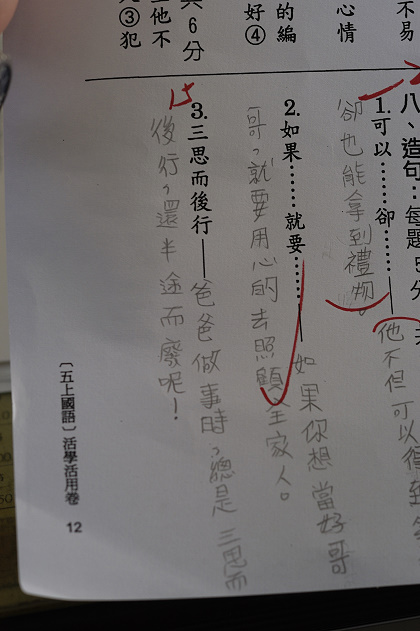 不易
心情
的編
好④
共6分
他不
③犯
八、造句：每題5分
1.可以……卻……——他不但可以得到
卻也能拿到禮物。
2.如果……就要……——如果你想當好哥
哥，就要用心的去照顧全家人。
15
3.三思而後行——爸爸做事時，總是三思而
後行，還半途而廢呢！
〔五上國語〕活學活用卷
12